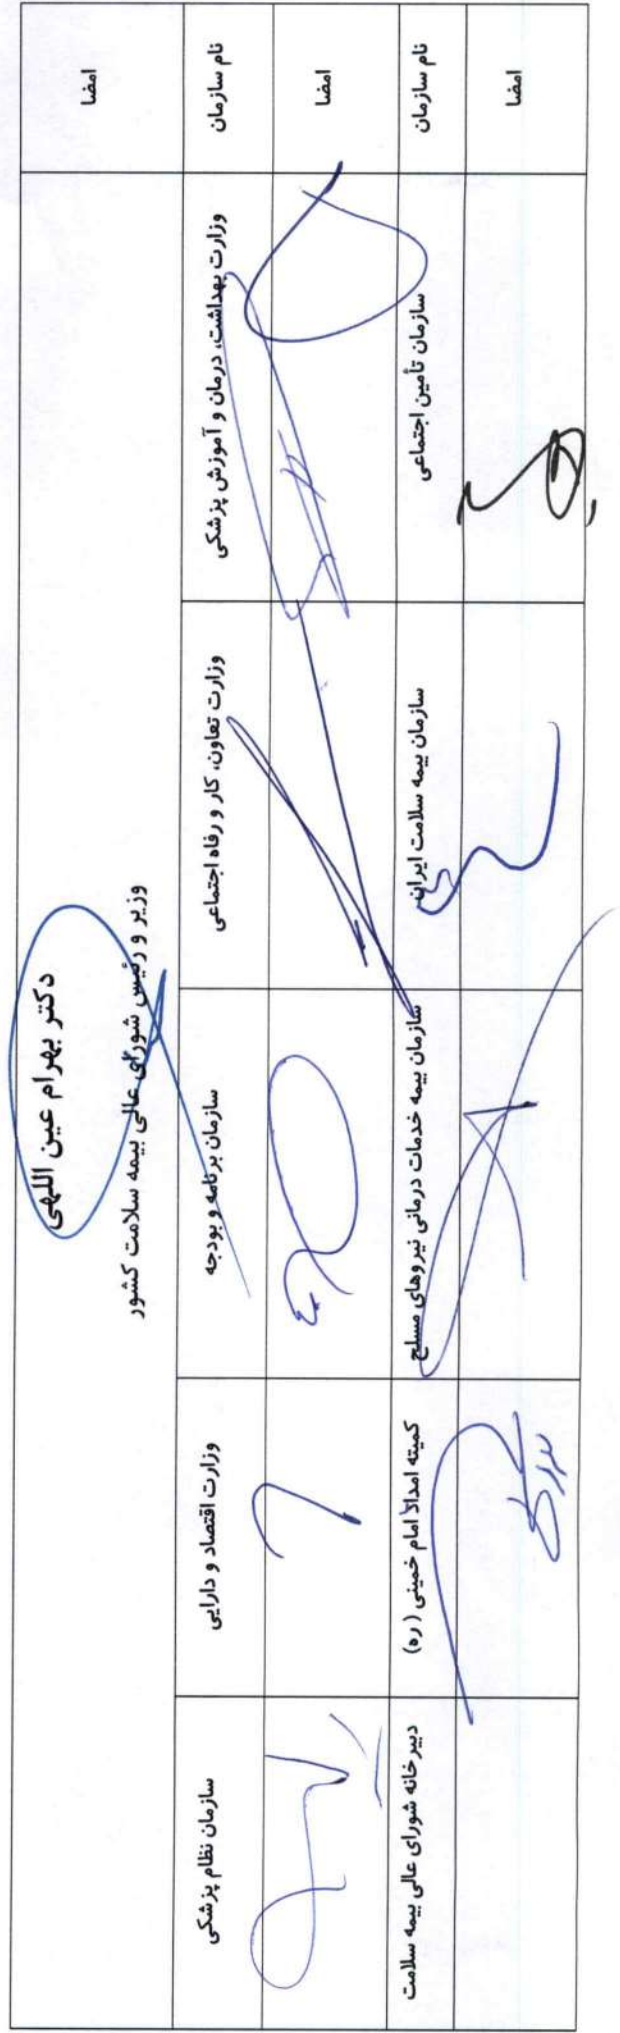 امضا
دکتر بهرام عین اللهی
وزیر و رئیس شورای عالی بیمه سلامت کشور
نام سازمان
وزارت بهداشت، درمان و آموزش پزشکی
وزارت تعاون، کار و رفاه اجتماعی
سازمان برنامه و بودجه
وزارت اقتصاد و دارایی
سازمان نظام پزشکی
امضا
نام سازمان
سازمان تأمین اجتماعی
سازمان بیمه سلامت ایران
سازمان بیمه خدمات درمانی نیروهای مسلح
کمیته امداد امام خمینی (ره)
دبیرخانه شورای عالی بیمه سلامت
امضا